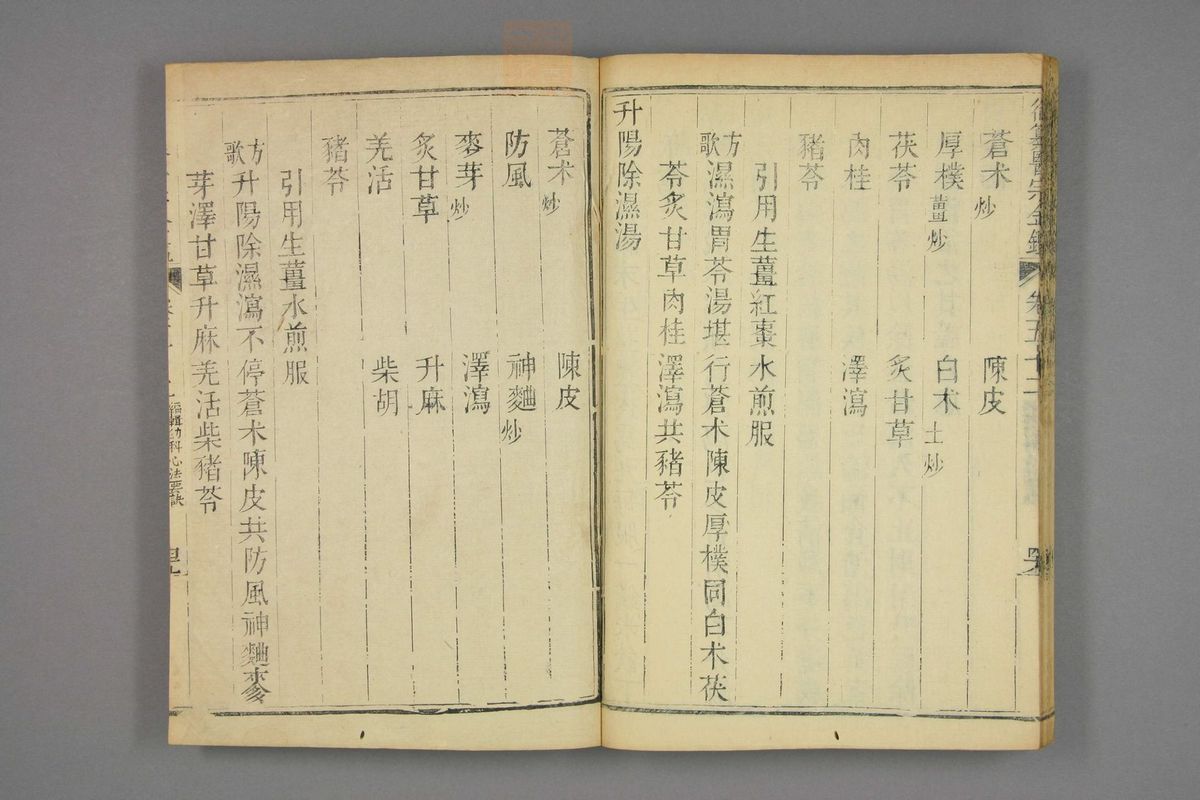 御纂醫宗金鑑 卷五十二
蒼术炒 陳皮
厚樸薑炒 白术土炒
茯苓 炙甘草
肉桂 澤瀉
豬苓
引用生薑紅棗水煎服
方歌 濕瀉胃苓湯堪行蒼术陳皮厚樸同白术茯
苓炙甘草肉桂澤瀉共豬苓
升陽除濕湯
蒼术炒 陳皮
防風 神麯炒
麥芽炒 澤瀉
炙甘草 升麻
羌活 柴胡
豬苓
引用生薑水煎服
方歌 升陽除濕瀉不停蒼术陳皮共防風神麯麥
芽澤甘草升麻羌活柴豬苓
編輯幼科心法要訣